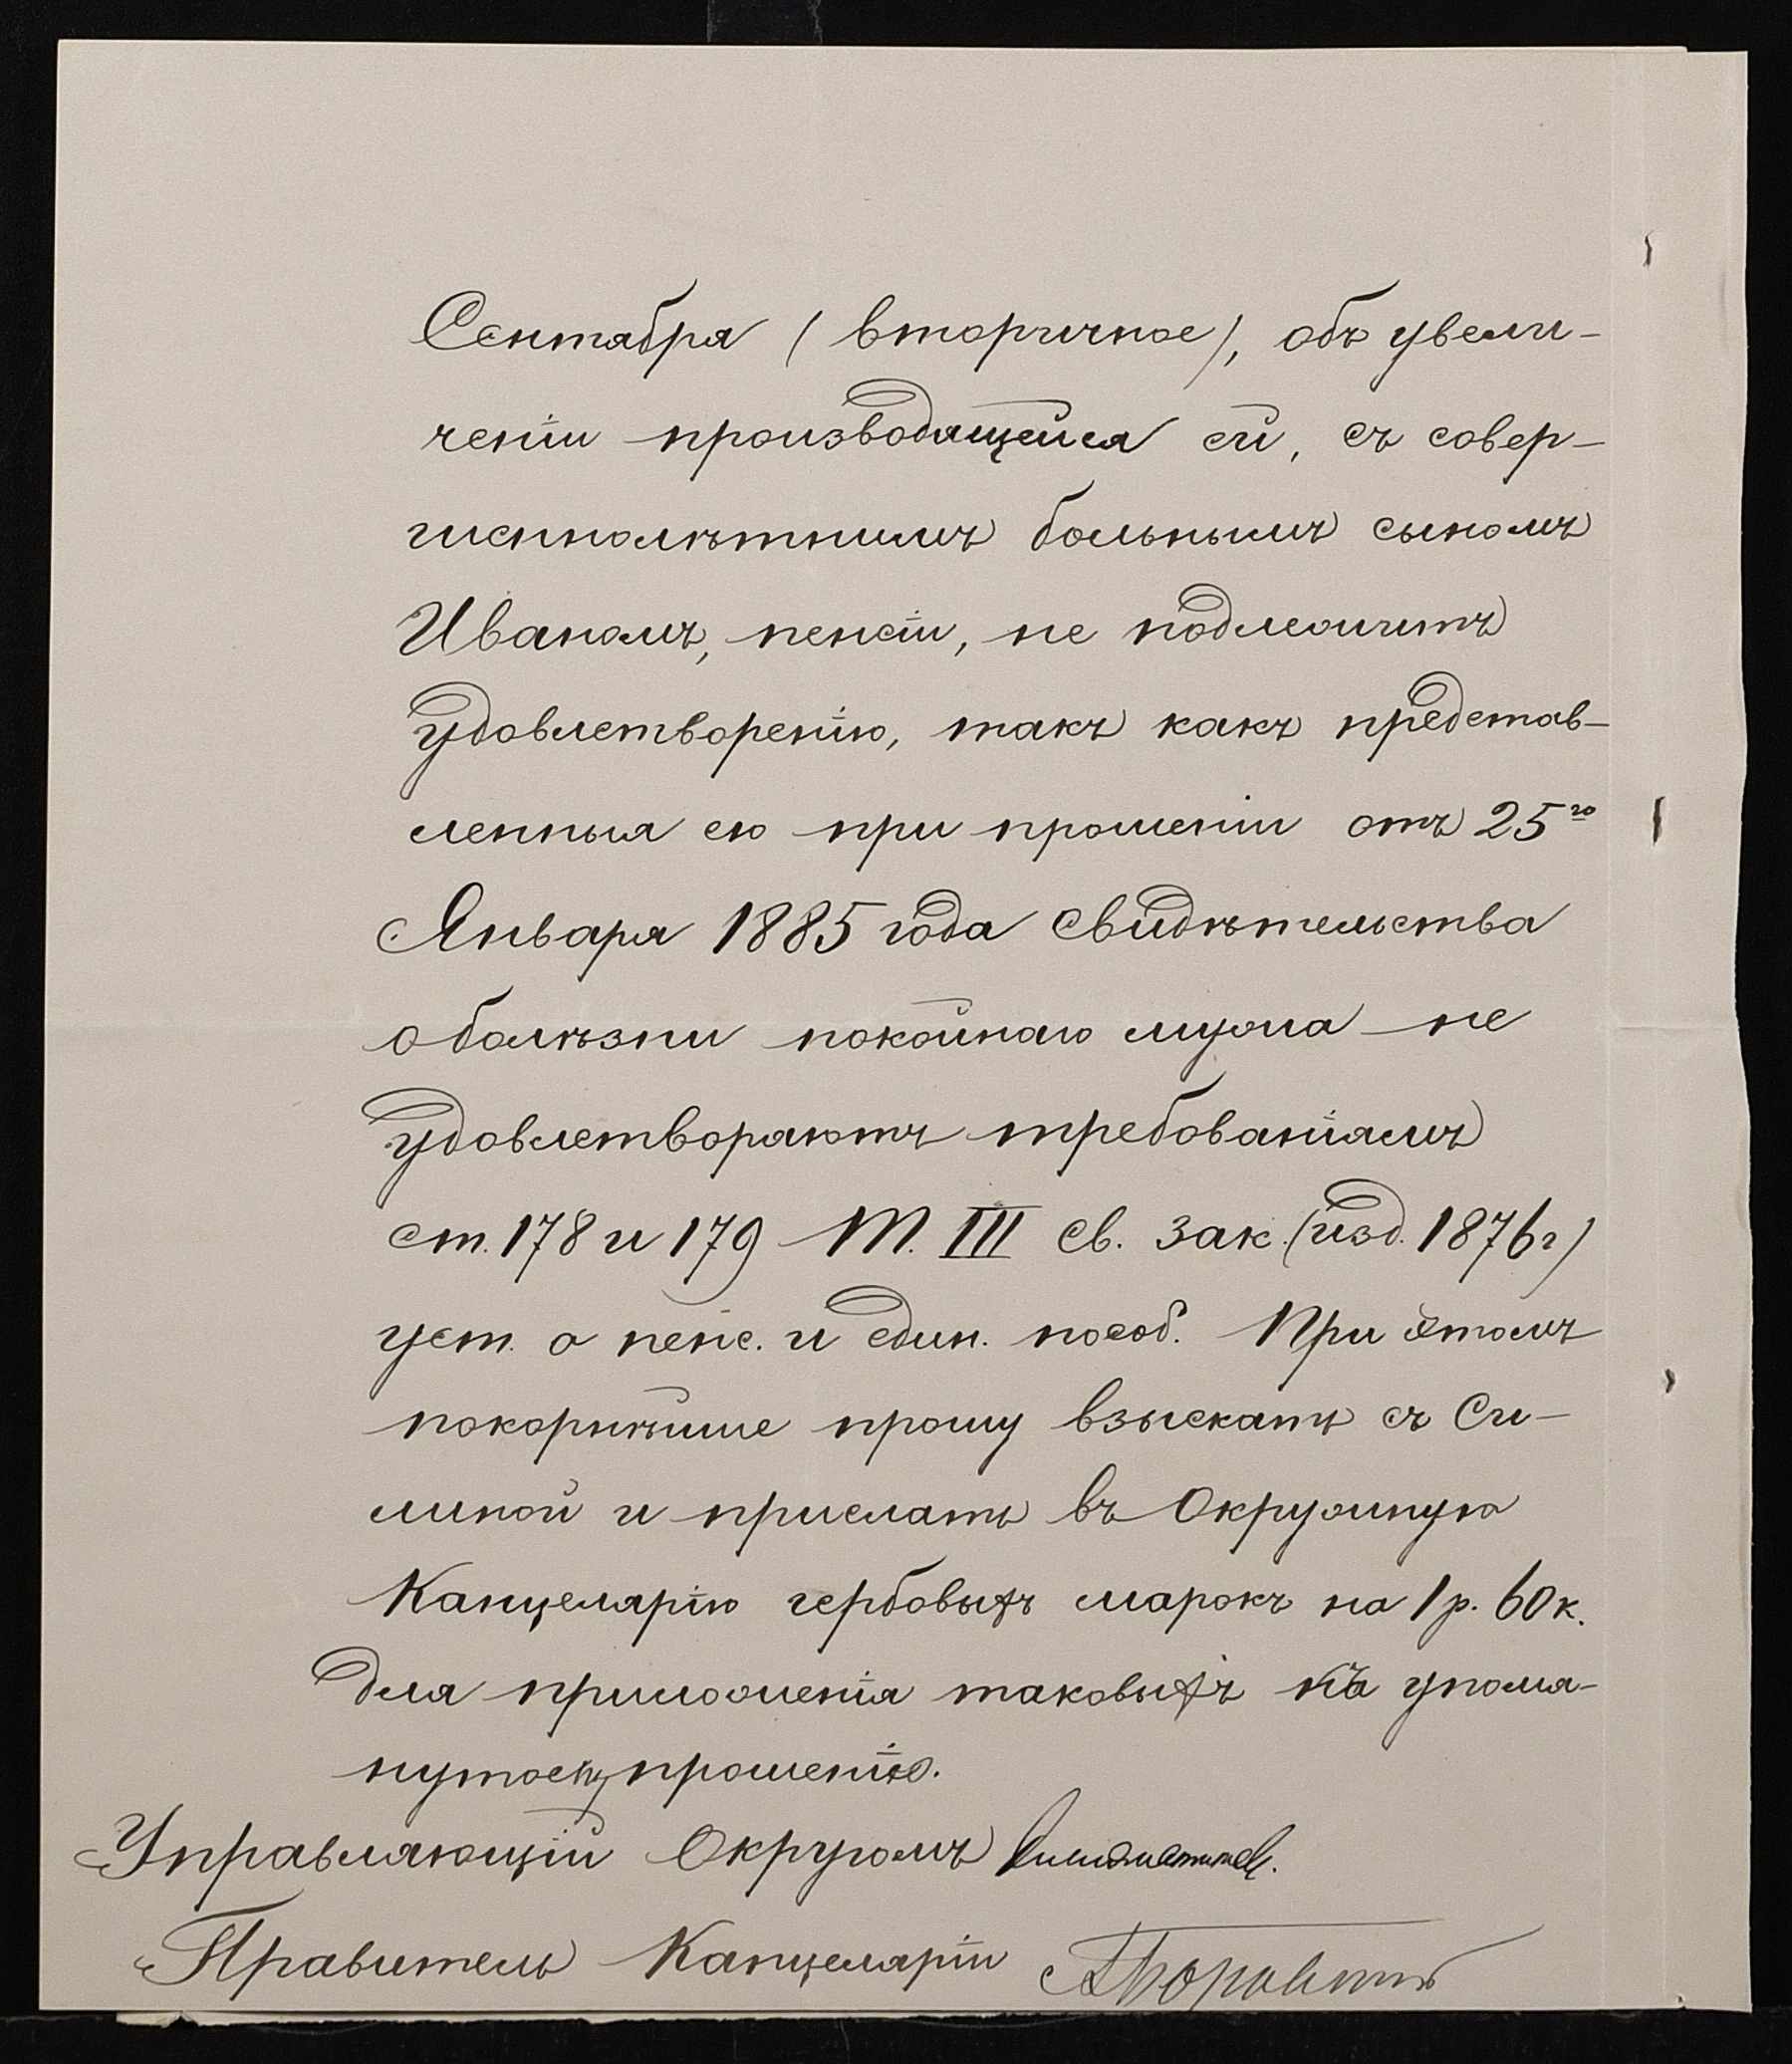 Сентября (вторичное), объ увели-
ченіи производящейся ей, съ совер-
шеннолѣтнимъ больнымъ сыномъ
Иваномъ, пенсіи, не подлежитъ
удовлетворенію, такъ какъ представ-
ленныя ею при прошеніи отъ 25го
Января 1885 года свидѣтельства
о болѣзни покойнаго мужа не
удовлетворяютъ требованіямъ
ст. 178 и 179 Т. III Св. Зак. (изд. 1876 г)
уст. о пенс. и един. пособ. При этомъ
покорнѣйше прошу взыскать съ Си-
линой и прислать въ Окружную
Канцелярію гербовыхъ марокъ на 1 р. 60 к.
для приложенія таковыхъ къ упомя-
нутому прошенію.
Управляющій Округомъ
Правитель Канцеляріи